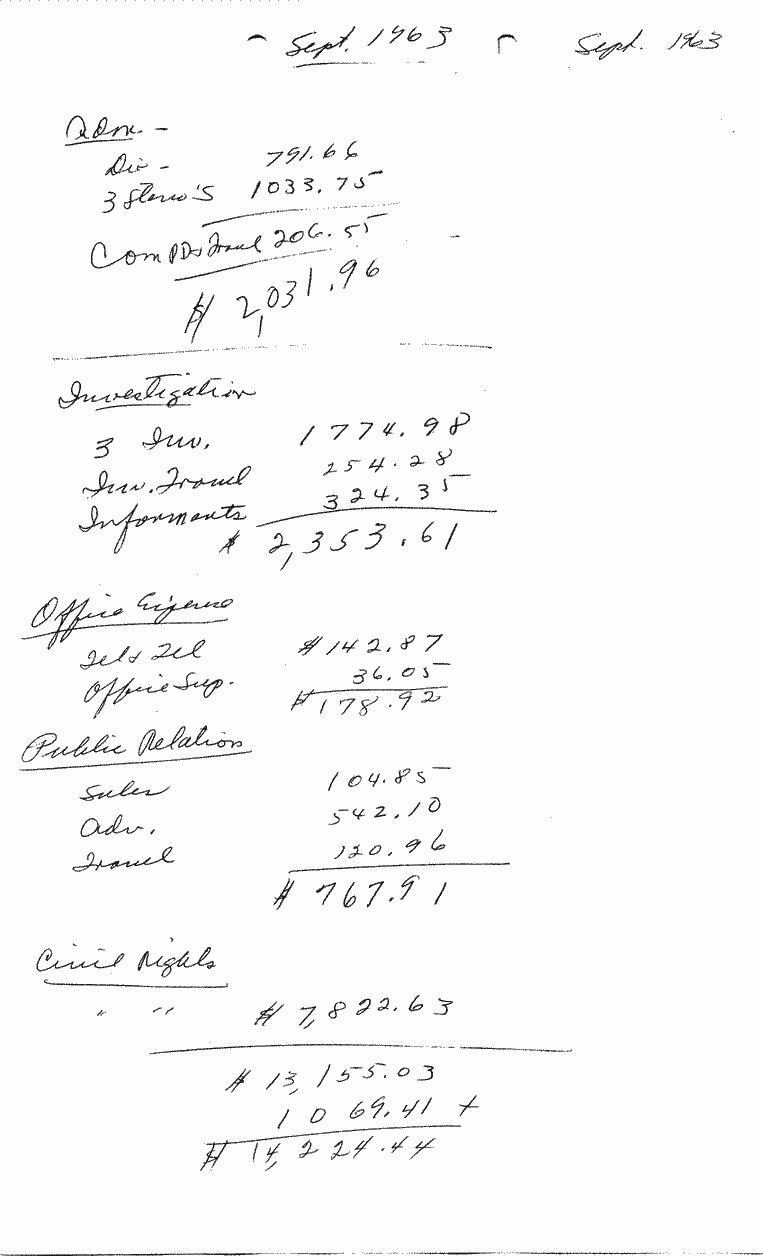 Sept. 1963 Sept. 1963
Adm. -
Dir - 791.66
3 Steno's 1033.75
Com PD & Travel 206.55
$ 2,031.96
Investigation
3 Inv. 1774.98
Inv. Travel 254.28
Informants 324.35
$ 2,353.61
Office Expense
Tel & Tel $142.87
Office Sup. 36.05
$178.92
Public Relation
Sales 104.85
Adv. 542.10
Travel 120.96
$ 767.91
Civil Rights
" " $ 7,822.63
$ 13,155.03
1069.41 +
$ 14,224.44